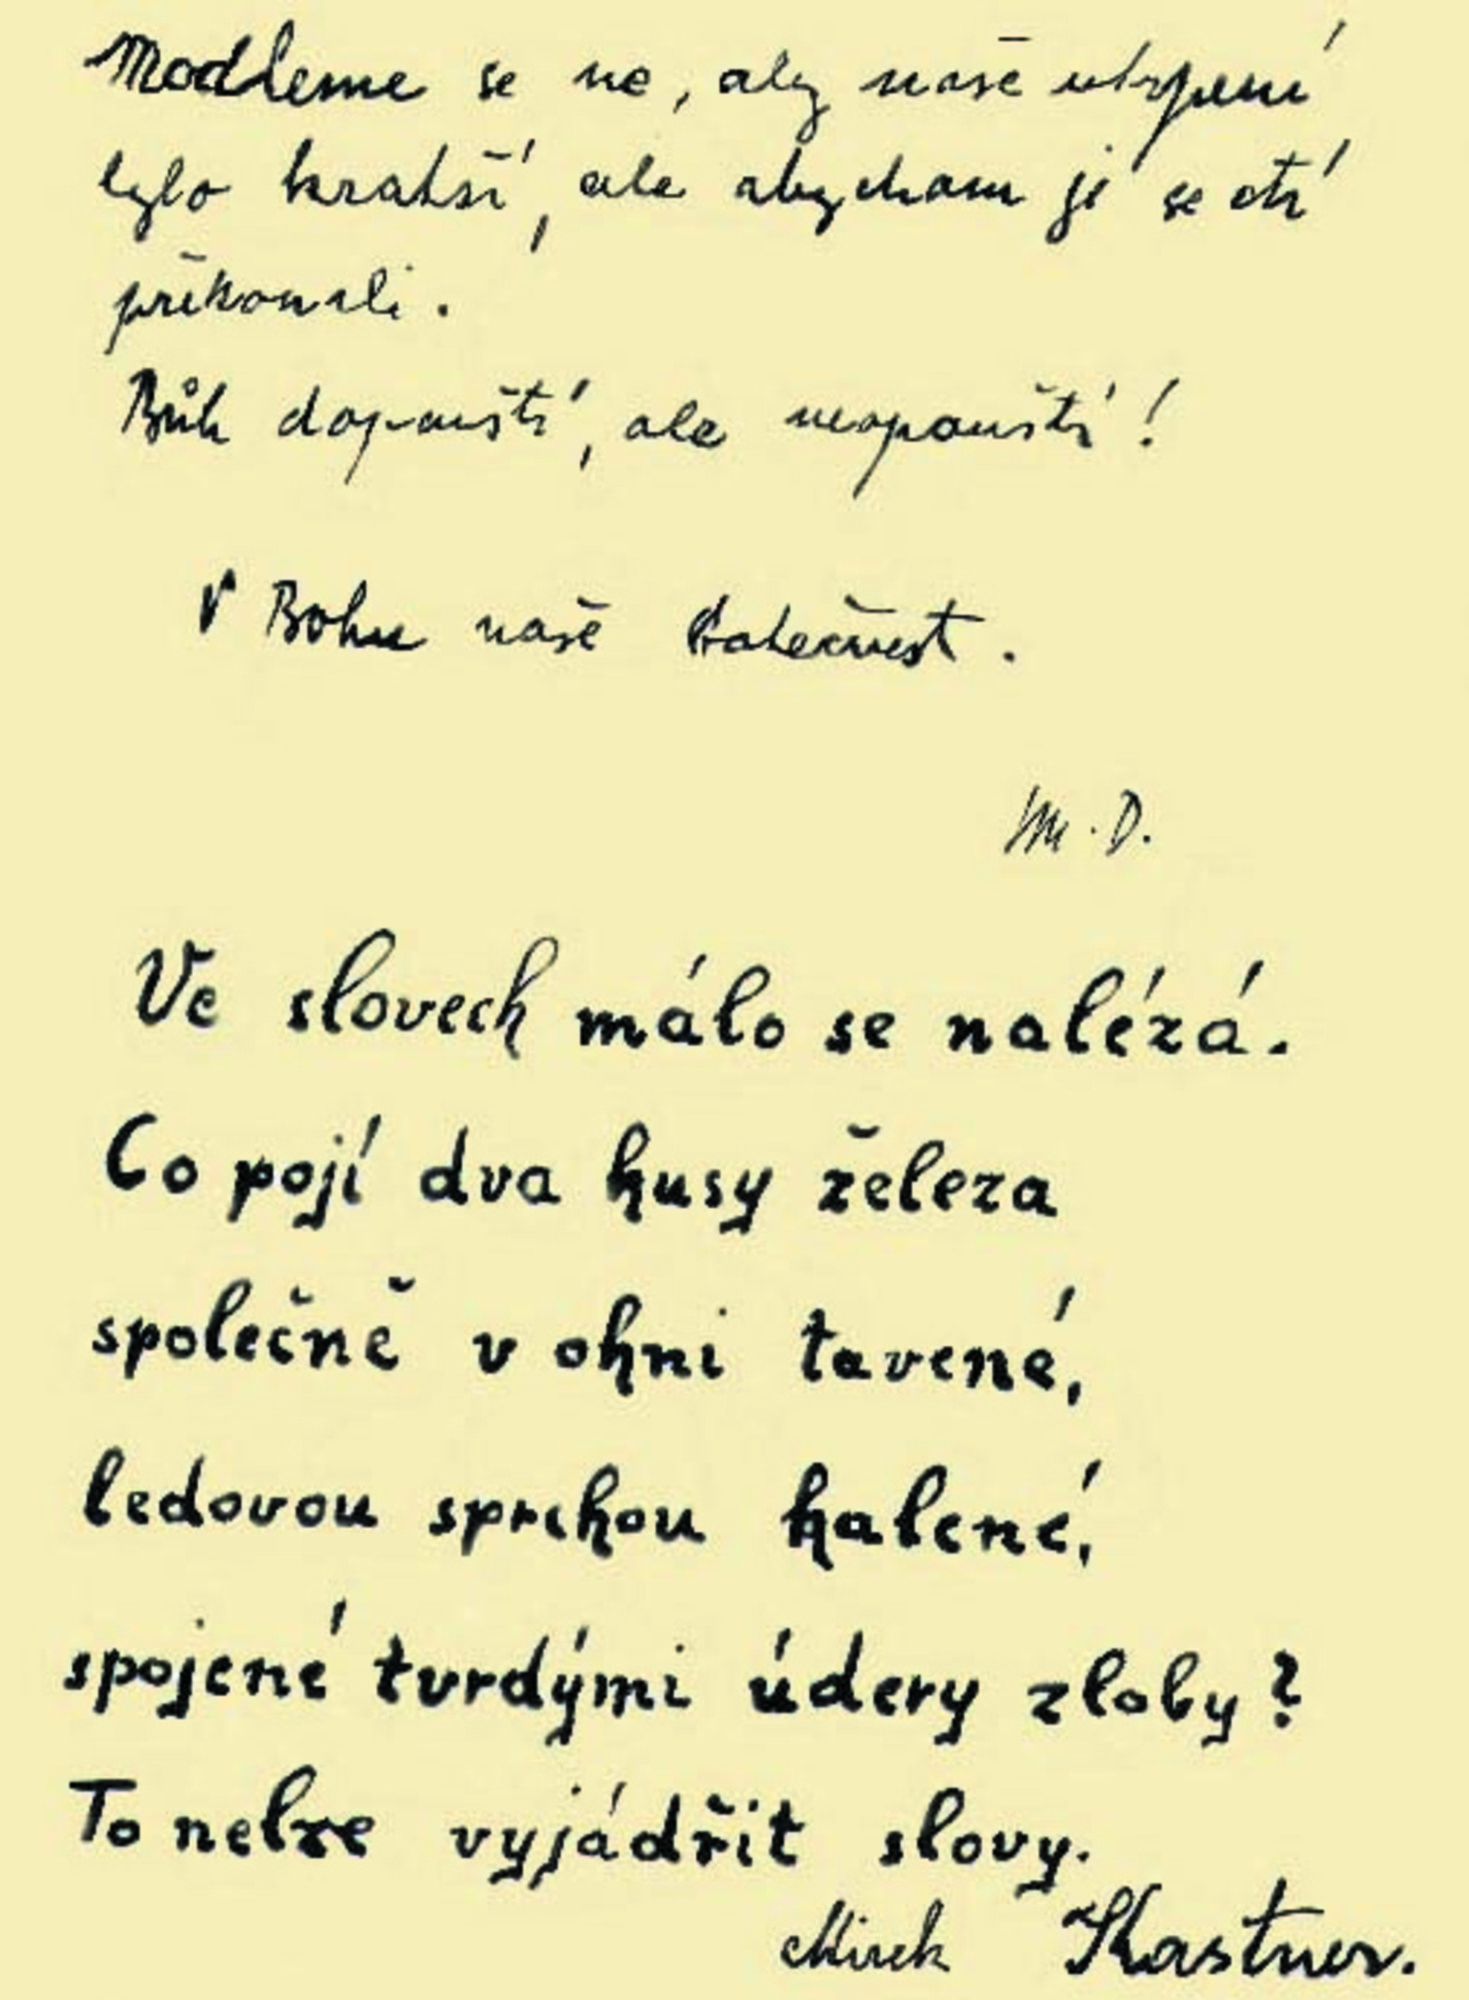 Modleme se ne, aby naše utrpení
bylo kratší, ale abychom je se ctí
překonali.
Bůh dopouští, ale neopouští!
V Bohu naše
M. D.
Ve slovech málo se nalézá.
Co pojí dva kusy železa
společně v ohni tavené,
ledovou sprchou kalené,
spojené tvrdými údery zloby?
To nelze vyjádřit slovy.
Mirek Kastner.